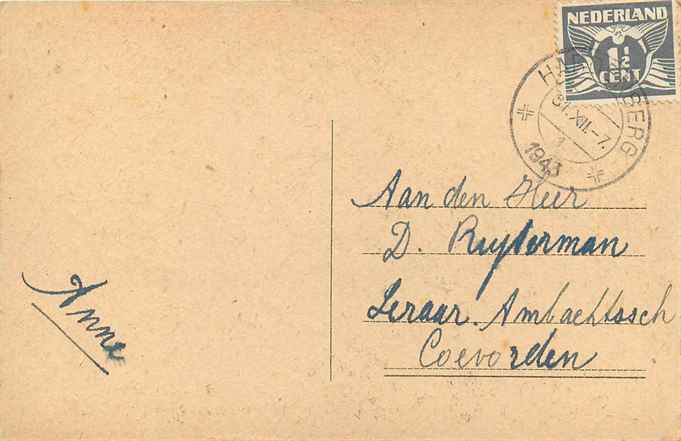 NEDERLAND
1½
CENT
31.XII.-7.
1943
Aan den Heer
D. Ruyterman
Leraar. Ambachtssch
Coevorden
Anne